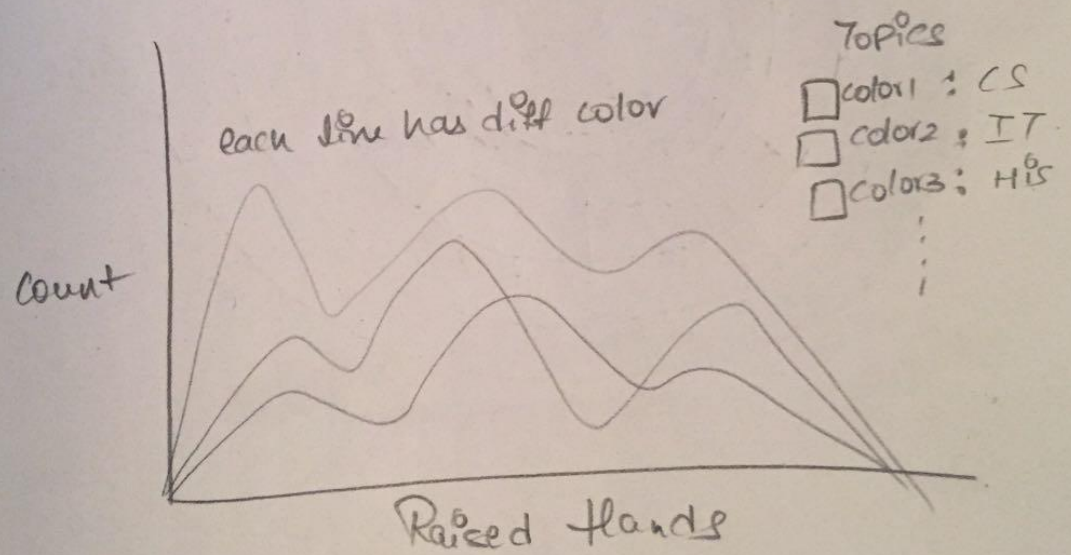 Topics
color1 : CS
color2 : IT
color3 : His
each line has diff color
Count
Raised Hands